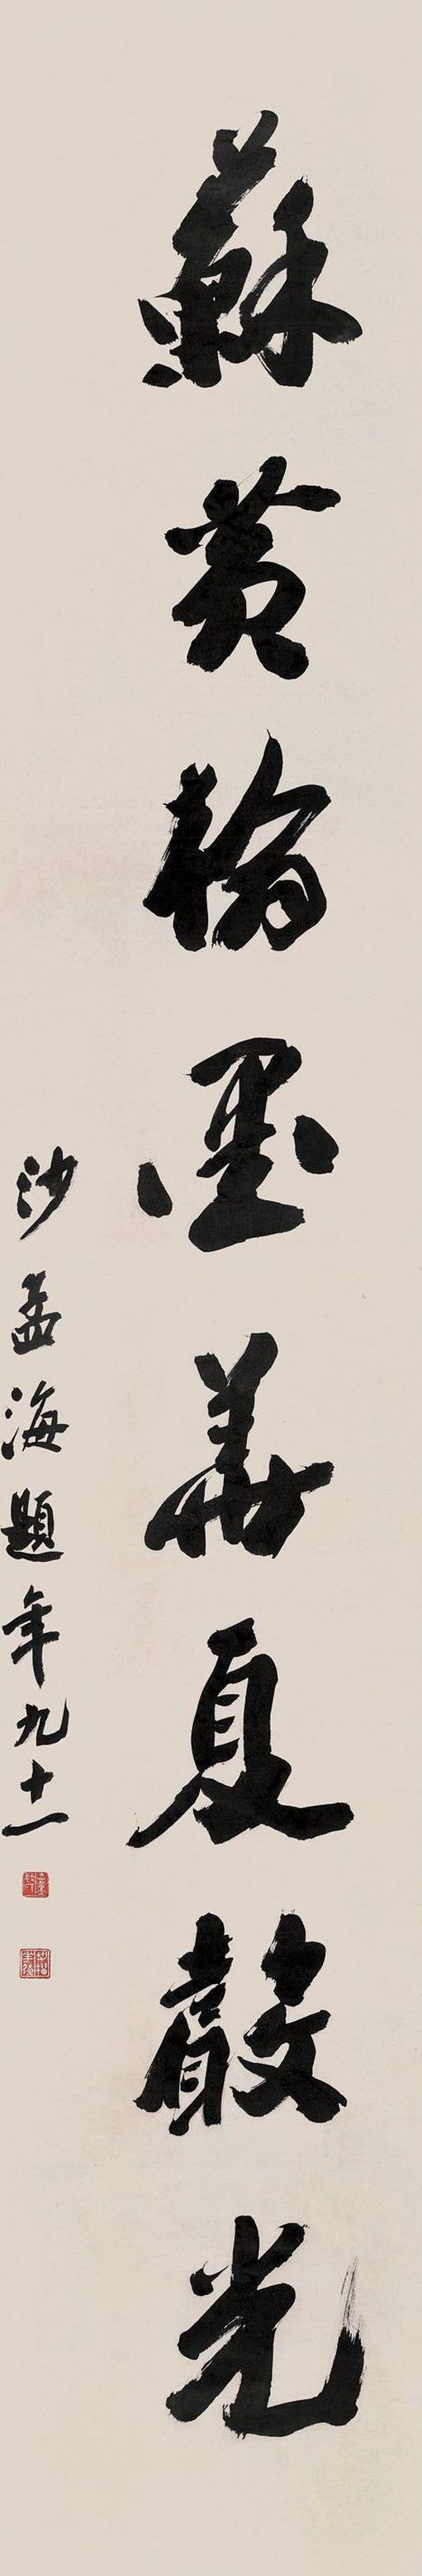 蘇黄翰墨華夏聲光
沙孟海題年九十一